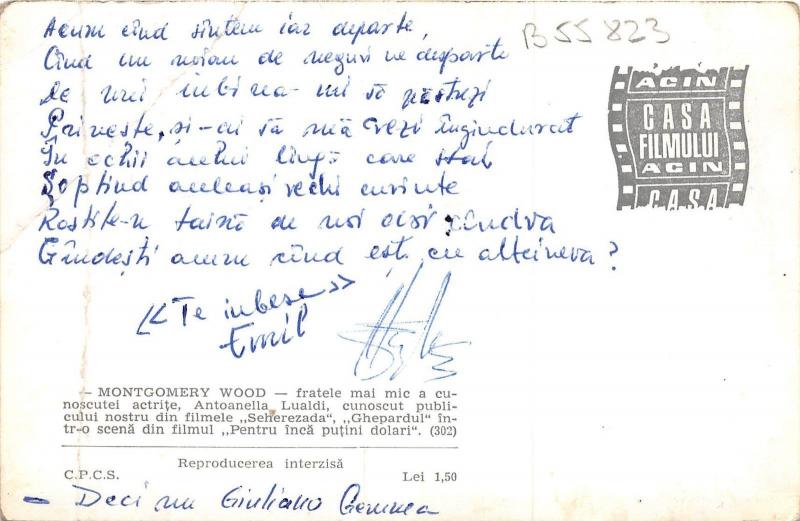 B 55823
Acum cînd sîntem iar departe,
Cînd un noian de neguri ne desparte
De mai iubirea-mi să păstrezi
Privește, și-ai să mă vezi îngîndurat
În ochii acelui lîngă care stai
Șoptind aceleași vechi cuvinte
Rostite-n taină de noi doi cîndva
Gîndești acum cînd ești cu altcineva?
<<Te iubesc>>
Emil
ACIN
CASA
FILMULUI
ACIN
CASA
— MONTGOMERY WOOD — fratele mai mic a cu-
noscutei actrițe, Antoanella Lualdi, cunoscut publi-
cului nostru din filmele „Seherezada", „Ghepardul" în-
tr-o scenă din filmul „Pentru încă puțini dolari". (302)
Reproducerea interzisă
C.P.C.S. Lei 1,50
- Deci nu Giuliano Gemma